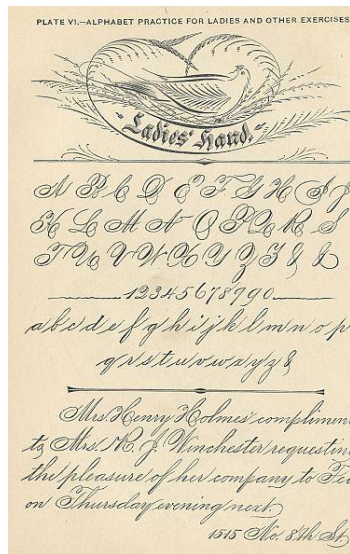 PLATE VI.—ALPHABET PRACTICE FOR LADIES AND OTHER EXERCISES
Ladies' Hand.
A B C D E F G H I J
K L M N O P Q R S
T U V W X Y Z & &
1234567890
a b c d e f g h i j k l m n o p
q r s t u v w x y z &
Mrs. Henry Holmes' complimen
to Mrs. M. J. Winchester requestin
the pleasure of her company to Tea
on Thursday evening next.
1515 No. 8th St.